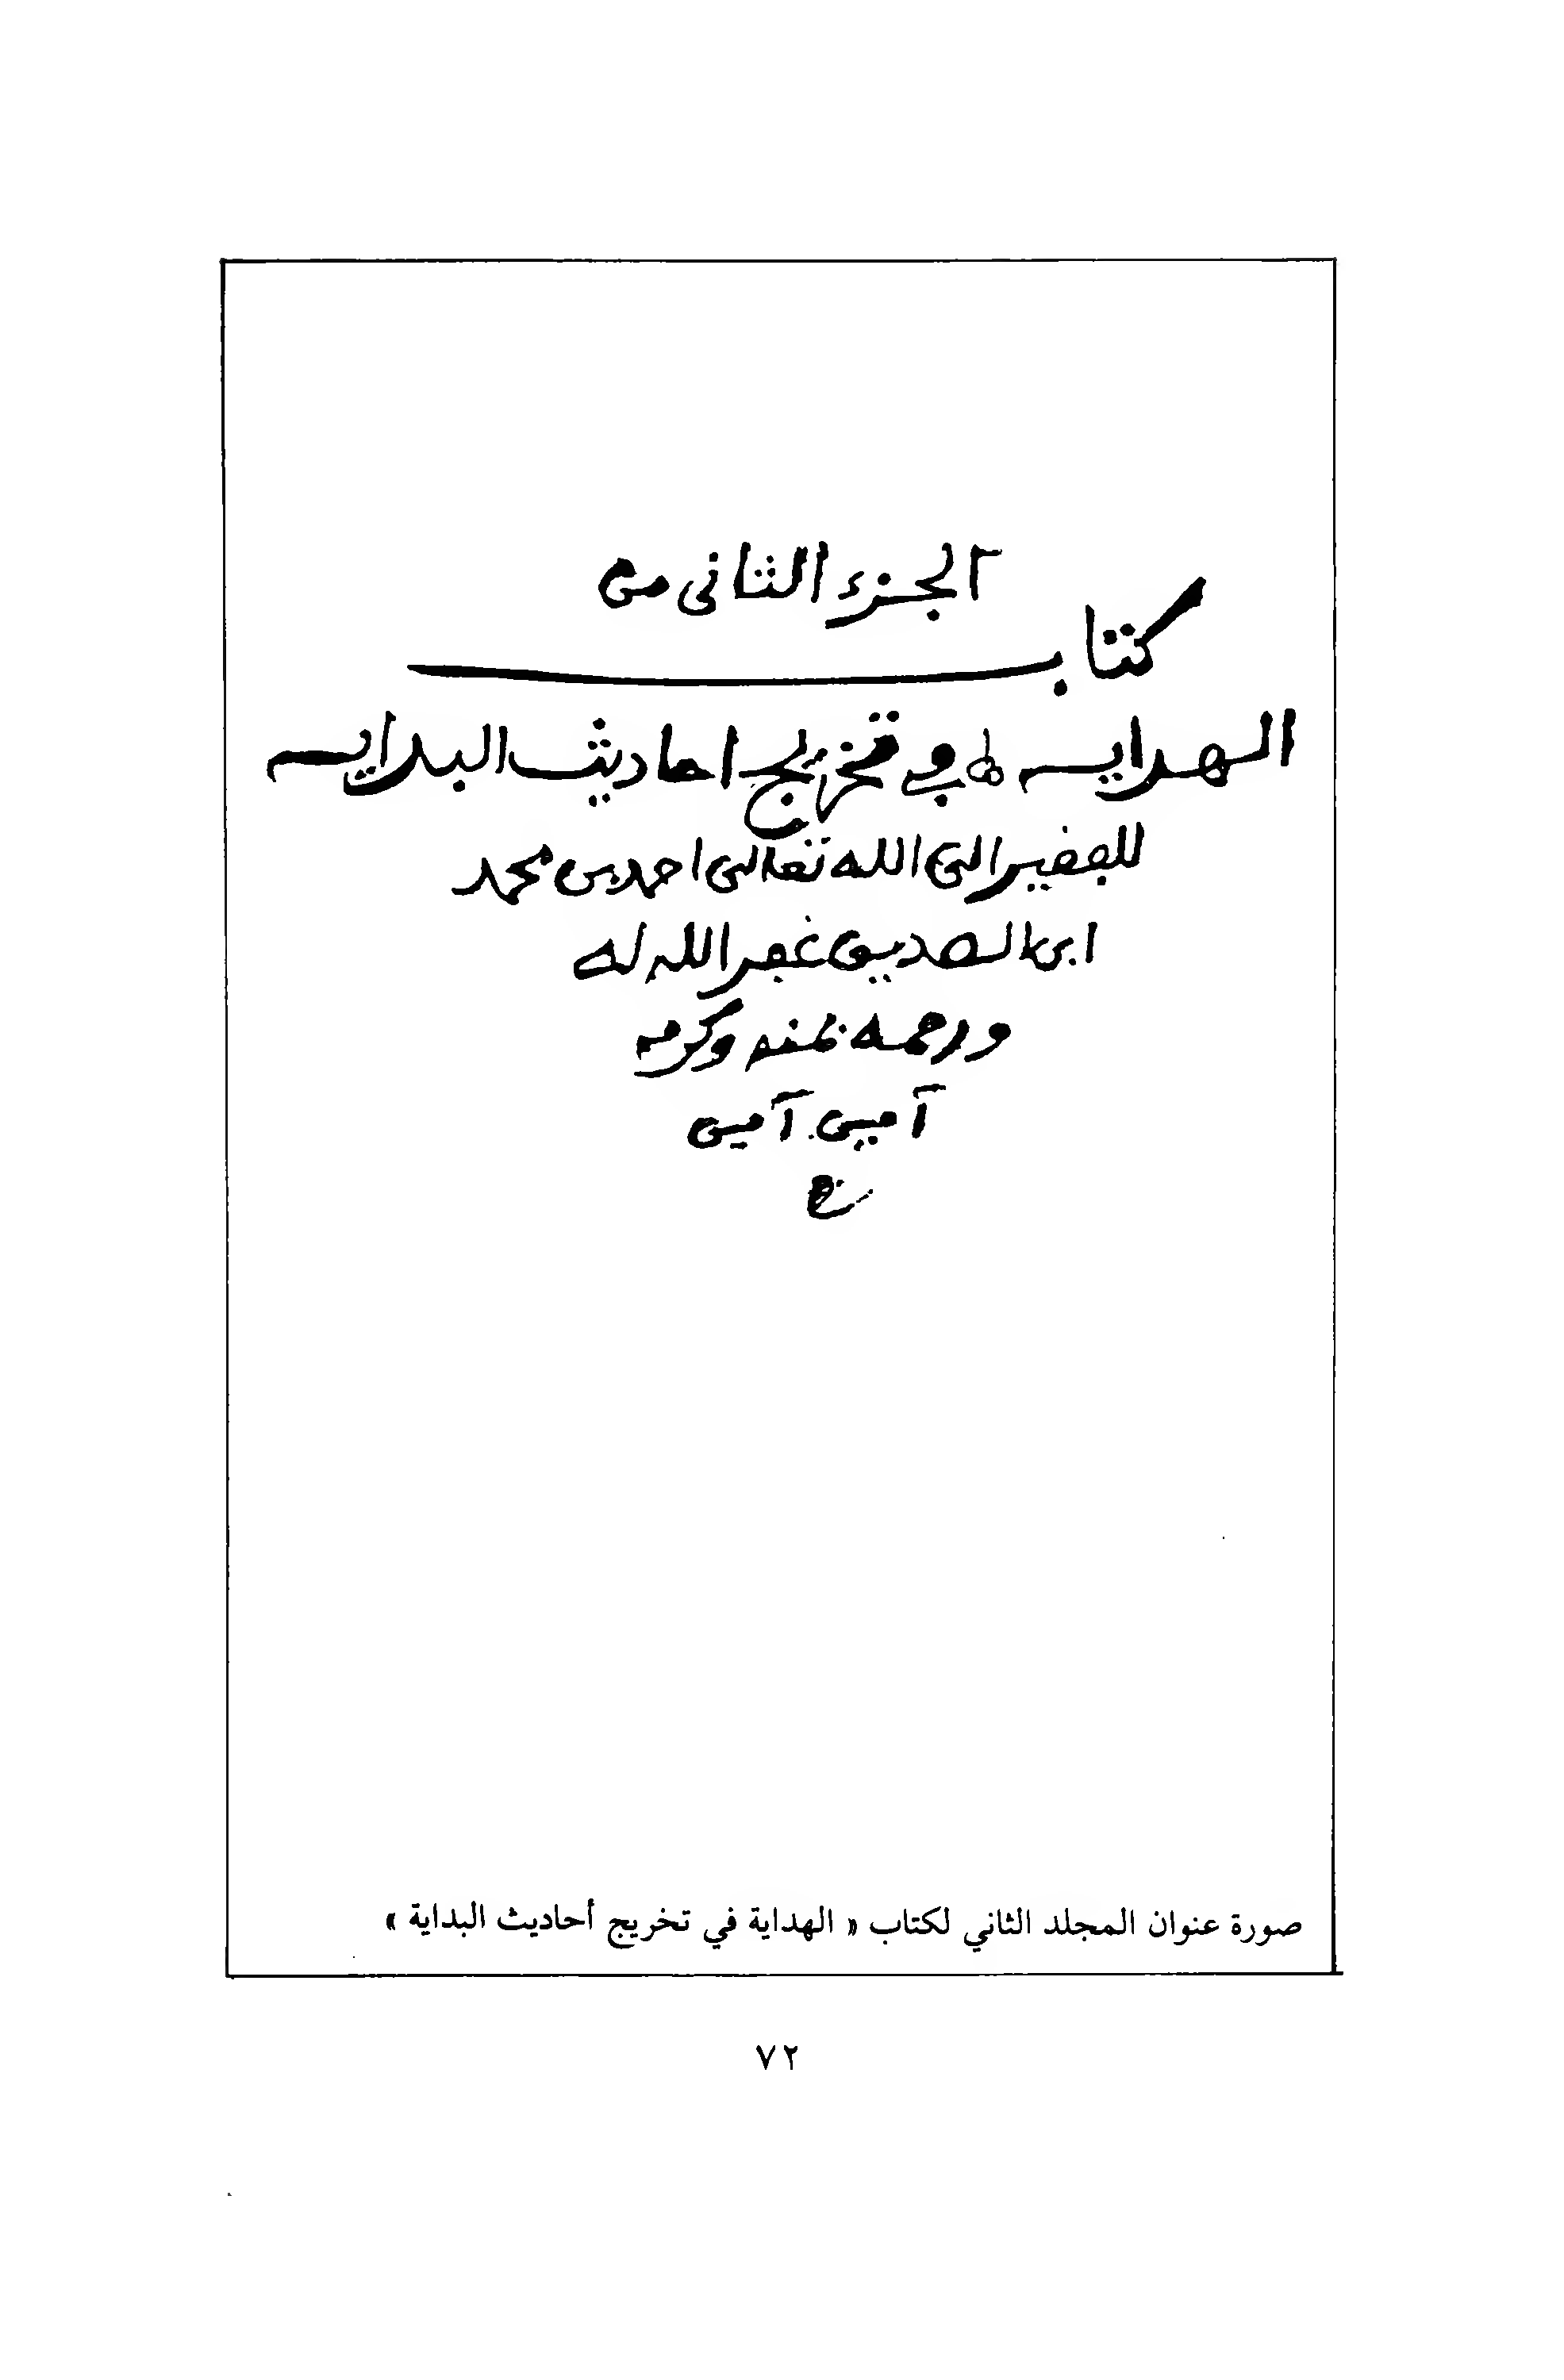 الجزء الثاني من
كتاب
الهدايه في تخريج احاديث البدايه
للفقير الى الله تعالى احمد بن محمد
ابن الصديق غفر الله له
ورحمه بمنه وكرمه
آمين. آمين
صورة عنوان المجلد الثاني لكتاب « الهداية في تخريج أحاديث البداية »
٧٢